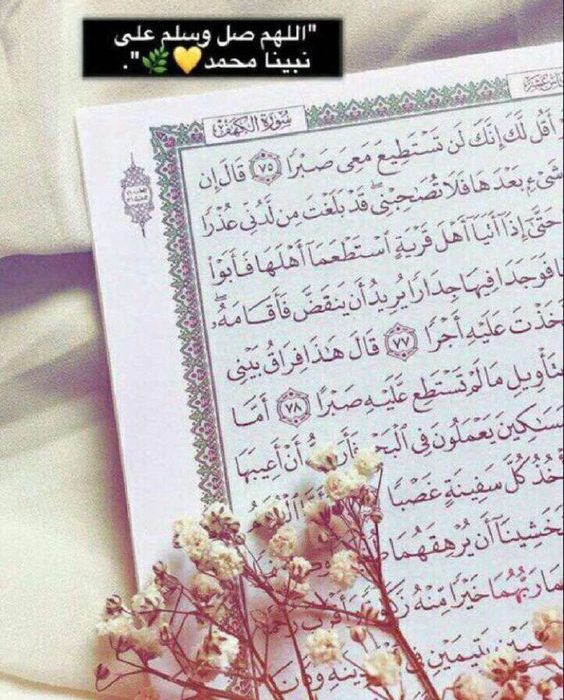 "اللهم صل وسلم على
نبينا محمد💛🌿".
سُورَةُ الكَهْفِ
أَقُل لَّكَ إِنَّكَ لَن تَسْتَطِيعَ مَعِىَ صَبْرًا ٧٥ قَالَ إِن
شَىْءٍ بَعْدَهَا فَلَا تُصَٰحِبْنِى قَدْ بَلَغْتَ مِن لَّدُنِّى عُذْرًا
حَتَّىٰٓ إِذَآ أَتَيَآ أَهْلَ قَرْيَةٍ ٱسْتَطْعَمَآ أَهْلَهَا فَأَبَوْا۟
فَوَجَدَا فِيهَا جِدَارًا يُرِيدُ أَن يَنقَضَّ فَأَقَامَهُۥ
خَذْتَ عَلَيْهِ أَجْرًا ٧٧ قَالَ هَٰذَا فِرَاقُ بَيْنِى
تَأْوِيلِ مَا لَمْ تَسْتَطِع عَّلَيْهِ صَبْرًا ٧٨ أَمَّا
مَسَٰكِينَ يَعْمَلُونَ فِى ٱلْبَحْرِ أَنْ أَعِيبَهَا
خُذُ كُلَّ سَفِينَةٍ غَصْبًا
خَشِينَآ أَن يُرْهِقَهُمَا
رَبُّهُمَا خَيْرًا مِّنْهُ
يَتِيمَيْنِ فِى